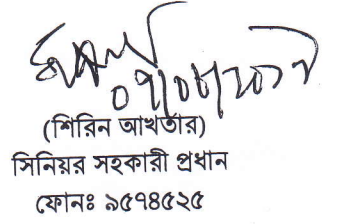 (শিরিন আখতার)
সিনিয়র সহকারী প্রধান
ফোনঃ ৯৫৭৪৫২৫